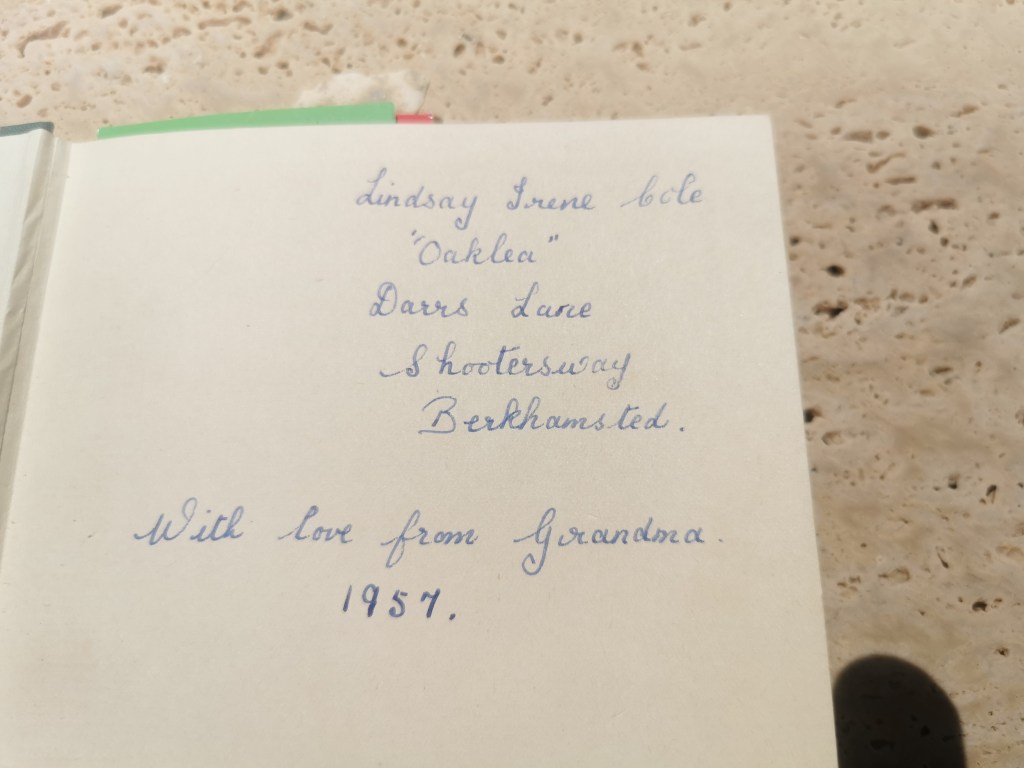 Lindsay Irene Cole
"Oaklea"
Darrs Lane
Shootersway
Berkhamsted.
With love from Grandma.
1957.